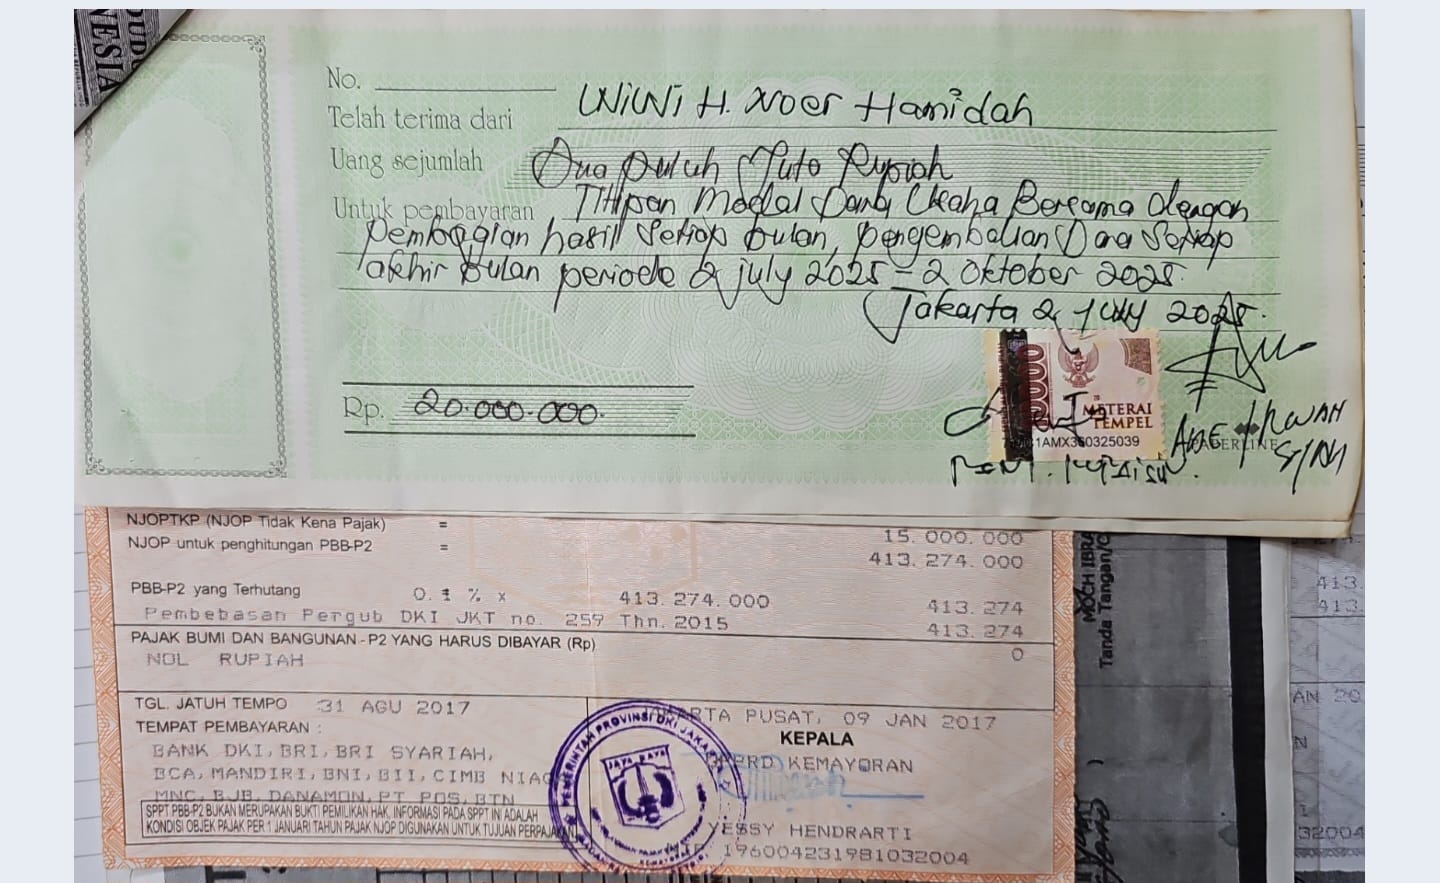 NESIA
No.
Telah terima dari WiWi H. Noer Hamidah
Uang sejumlah Dua puluh Juta Rupiah
Untuk pembayaran Titipan Modal Dana Usaha Bersama dengan
pembagian hasil setiap bulan, pengembalian Dana setiap
akhir bulan periode 2 july 2025 - 2 oktober 2025.
Jakarta 2 july 2025.
Rp. 20.000.000.
METERAI
TEMPEL
1AMX360325039
PAPERLINE
NJOPTKP (NJOP Tidak Kena Pajak) = 15. 000. 000
NJOP untuk penghitungan PBB-P2 = 413. 274. 000
PBB-P2 yang Terhutang 0. 1 % x 413. 274. 000 413. 274
Pembebasan Pergub DKI JKT no. 259 Thn. 2015 413. 274
PAJAK BUMI DAN BANGUNAN - P2 YANG HARUS DIBAYAR (Rp) 0
NOL RUPIAH
TGL. JATUH TEMPO 31 AGU 2017
TEMPAT PEMBAYARAN :
BANK DKI, BRI, BRI SYARIAH,
BCA, MANDIRI, BNI, BII, CIMB NIAG
MNC, BJB, DANAMON, PT POS, BTN
SPPT PBB-P2 BUKAN MERUPAKAN BUKTI PEMILIKAN HAK. INFORMASI PADA SPPT INI ADALAH
KONDISI OBJEK PAJAK PER 1 JANUARI TAHUN PAJAK NJOP DIGUNAKAN UNTUK TUJUAN PERPAJAKAN
JAKARTA PUSAT, 09 JAN 2017
KEPALA
UPPRD KEMAYORAN
YESSY HENDRARTI
196004231981032004
PEMERINTAH PROVINSI DKI JAKARTA
JAYA RAYA
MOCH IBRA
Tanda Tangan/C
413.
413.
AN 20
32004